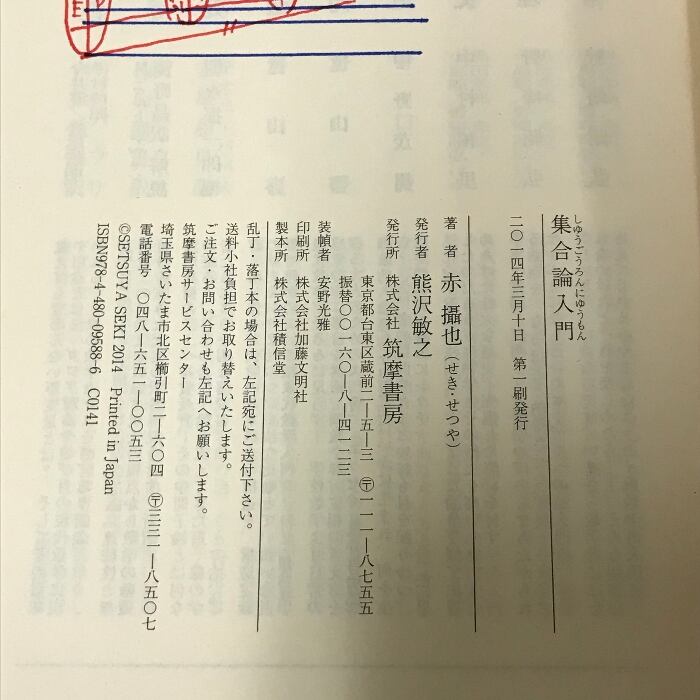 しゅうごうろんにゅうもん
集合論入門
二〇一四年三月十日　第一刷発行
著　者　赤　攝也（せき・せつや）
発行者　熊沢敏之
発行所　株式会社　筑摩書房
東京都台東区蔵前二―五―三　〒一一一―八七五五
振替〇〇一六〇―八―四一二三
装幀者　安野光雅
印刷所　株式会社加藤文明社
製本所　株式会社積信堂
乱丁・落丁本の場合は、左記宛にご送付下さい。
送料小社負担でお取り替えいたします。
ご注文・お問い合わせも左記へお願いします。
筑摩書房サービスセンター
埼玉県さいたま市北区櫛引町二―六〇四　〒三三一―八五〇七
電話番号　〇四八―六五一―〇〇五三
©SETSUYA SEKI 2014　Printed in Japan
ISBN978-4-480-09588-6　C0141